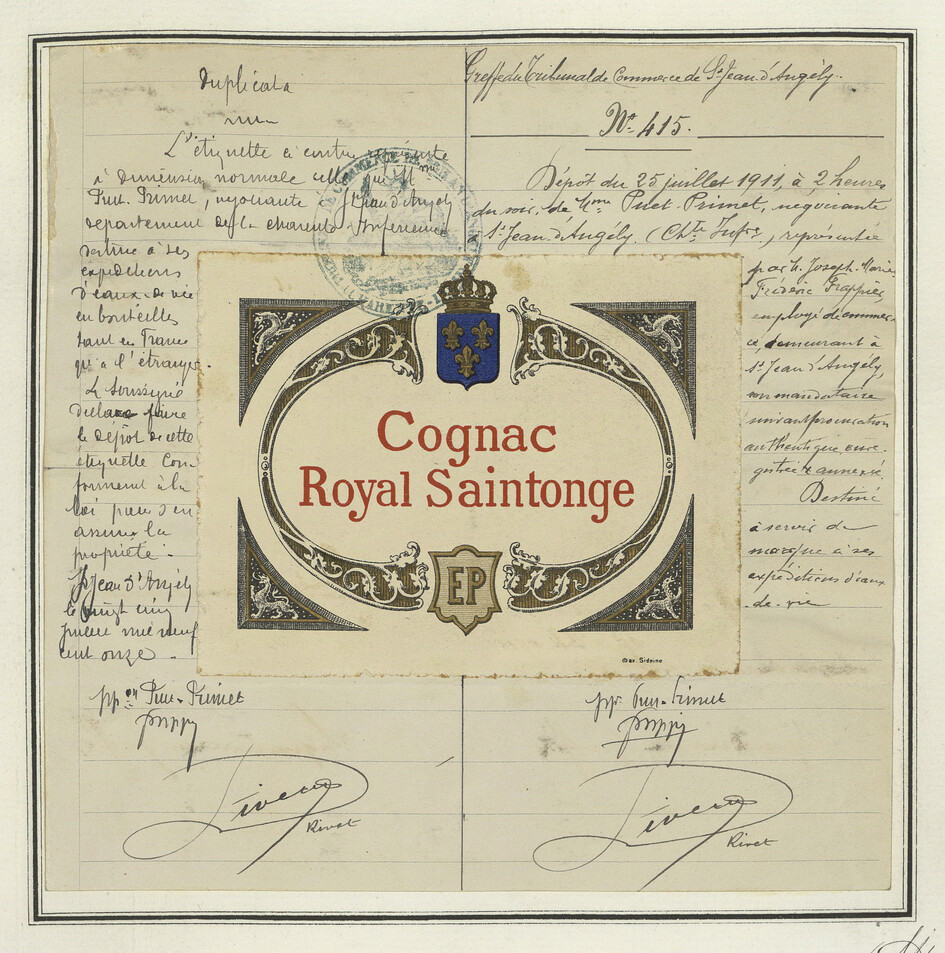 Duplicata
L'étiquette ci contre représente
à dimension normale celle que Mme
Puet-Primet, négociante à St Jean d'Angély
département de la Charente Inférieure
destine à ses
expéditions
d'eaux-de-vie
en bouteilles
tant en France
qu'à l'étranger.
Le soussigné
déclare faire
le dépôt de cette
étiquette con-
formément à la
loi pour s'en
assurer la
propriété.
St Jean d'Angély
le vingt cinq
juillet mil neuf
cent onze.
ppon Puet-Primet
Rivet
Greffe du Tribunal de Commerce de St Jean d'Angély.
No 415.
Dépôt du 25 juillet 1911, à 2 heures
du soir, de Mme Puet-Primet, négociante
à St Jean d'Angély. (Chte Infre.) représentée
par M. Joseph-Marie
Frédéric Frappier,
employé de commer-
ce, demeurant à
St Jean d'Angély,
son mandataire
suivant procuration
authentique enre-
gistrée & annexée.
Destiné
à servir de
marque à ses
expéditions d'eaux
-de-vie
pp. Puet-Primet
Rivet
Cognac
Royal Saintonge
EP